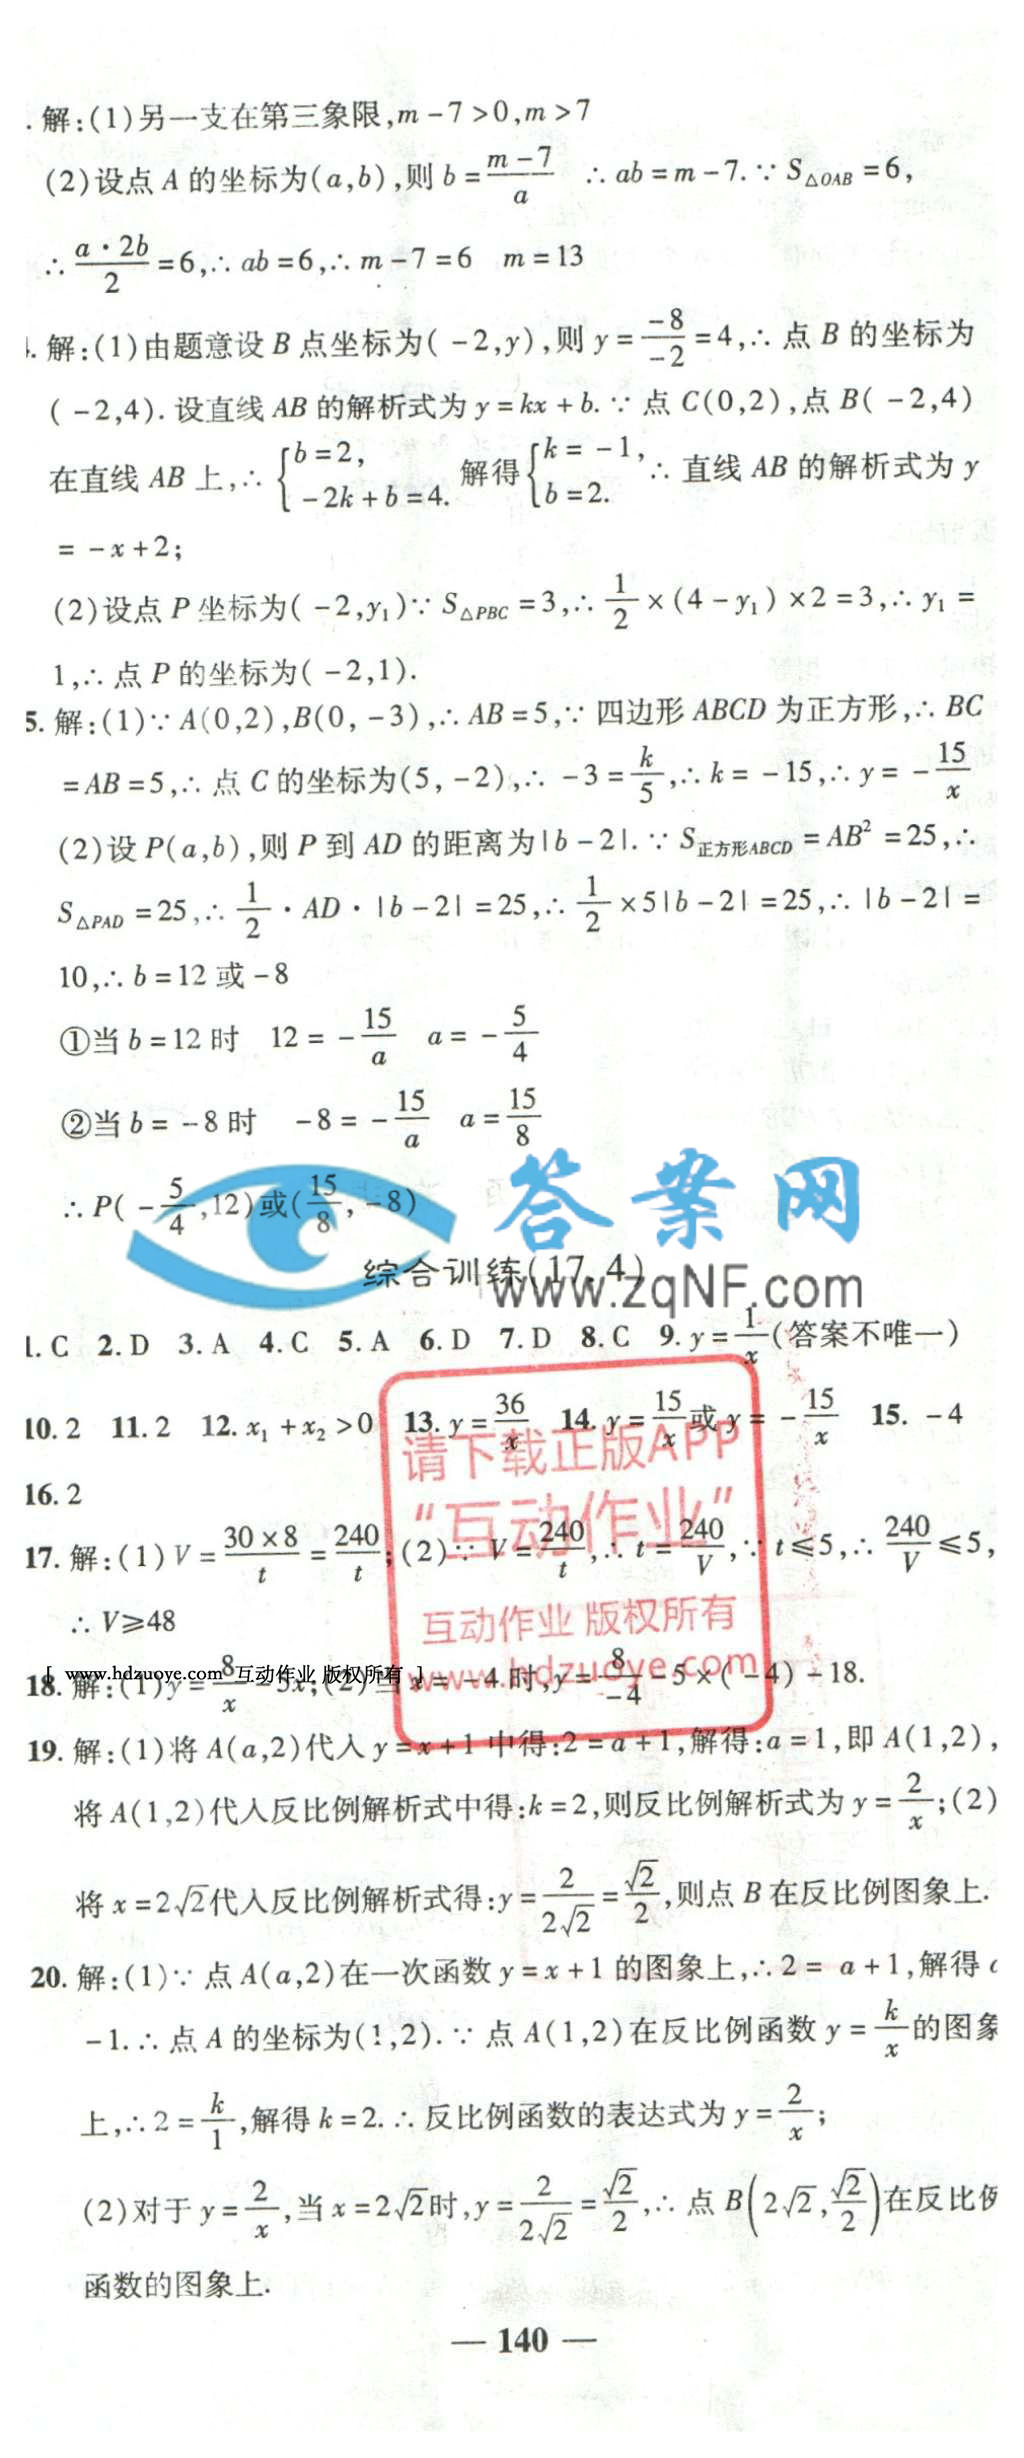 .解:(1)另一支在第三象限,m-7>0,m>7
(2)设点A的坐标为(a,b),则b=\frac{m-7}{a} ∴ab=m-7.∵S△OAB=6,
∴\frac{a·2b}{2}=6,∴ab=6,∴m-7=6 m=13
.解:(1)由题意设B点坐标为(-2,y),则y=\frac{-8}{-2}=4,∴点B的坐标为
(-2,4).设直线AB的解析式为y=kx+b.∵点C(0,2),点B(-2,4)
在直线AB上,∴{b=2, -2k+b=4. 解得{k=-1, b=2. ∴直线AB的解析式为y
=-x+2;
(2)设点P坐标为(-2,y₁)∵S△PBC=3,∴\frac{1}{2}×(4-y₁)×2=3,∴y₁=
1,∴点P的坐标为(-2,1).
5.解:(1)∵A(0,2),B(0,-3),∴AB=5,∵四边形ABCD为正方形,∴BC
=AB=5,∴点C的坐标为(5,-2),∴-3=\frac{k}{5},∴k=-15,∴y=-\frac{15}{x}
(2)设P(a,b),则P到AD的距离为|b-2|.∵S正方形ABCD=AB²=25,∴
S△PAD=25,∴\frac{1}{2}·AD·|b-2|=25,∴\frac{1}{2}×5|b-2|=25,∴|b-2|=
10,∴b=12或-8
①当b=12时 12=-\frac{15}{a} a=-\frac{5}{4}
②当b=-8时 -8=-\frac{15}{a} a=\frac{15}{8}
∴P(-\frac{5}{4},12)或(\frac{15}{8},-8)
答案网
综合训练(17.4)
www.zqNF.com
1.C 2.D 3.A 4.C 5.A 6.D 7.D 8.C 9.y=\frac{1}{x}(答案不唯一)
10.2 11.2 12.x₁+x₂>0 13.y=\frac{36}{x} 14.y=\frac{15}{x}或y=-\frac{15}{x} 15.-4
请下载正版APP
16.2
“互动作业”
17.解:(1)V=\frac{30×8}{t}=\frac{240}{t};(2)∵V=\frac{240}{t},∴t=\frac{240}{V},∵t≤5,∴\frac{240}{V}≤5,
∴V≥48
互动作业 版权所有
www.hdzuoye.com
[ www.hdzuoye.com 互动作业 版权所有 ]
18.解:(1)y=\frac{8}{x}-5x;(2)当x=-4时,y=\frac{8}{-4}-5×(-4)-18.
19.解:(1)将A(a,2)代入y=x+1中得:2=a+1,解得:a=1,即A(1,2),
将A(1,2)代入反比例解析式中得:k=2,则反比例解析式为y=\frac{2}{x};(2)
将x=2√2代入反比例解析式得:y=\frac{2}{2√2}=\frac{√2}{2},则点B在反比例图象上.
20.解:(1)∵点A(a,2)在一次函数y=x+1的图象上,∴2=a+1,解得
-1.∴点A的坐标为(1,2).∵点A(1,2)在反比例函数y=\frac{k}{x}的图象
上,∴2=\frac{k}{1},解得k=2.∴反比例函数的表达式为y=\frac{2}{x};
(2)对于y=\frac{2}{x},当x=2√2时,y=\frac{2}{2√2}=\frac{√2}{2},∴点B(2√2,\frac{√2}{2})在反比例
函数的图象上.
— 140 —